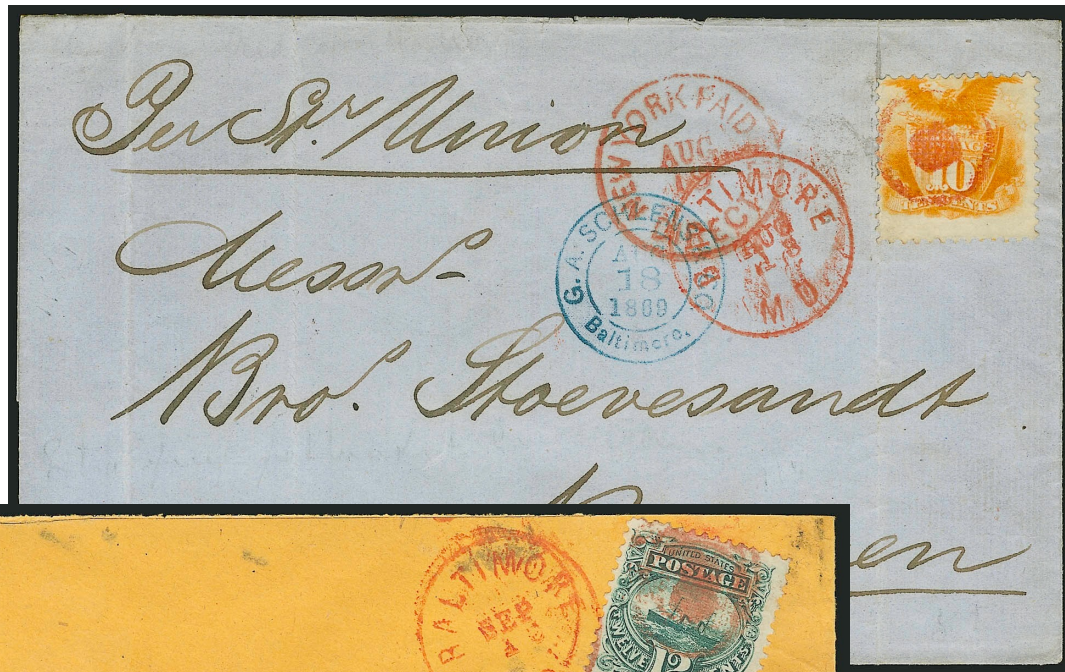 Per Str. Union
NEW YORK PAID
AUG
DIRECT
BALTIMORE
AUG
18
MD
G. A. SCHWENS & CO
AUG
18
1869
Baltimore.
10
TEN CENTS
Messrs
Bro. Stoevesandt
en
BALTIMORE
SEP
UNITED STATES
POSTAGE
12
TWELVE CENTS